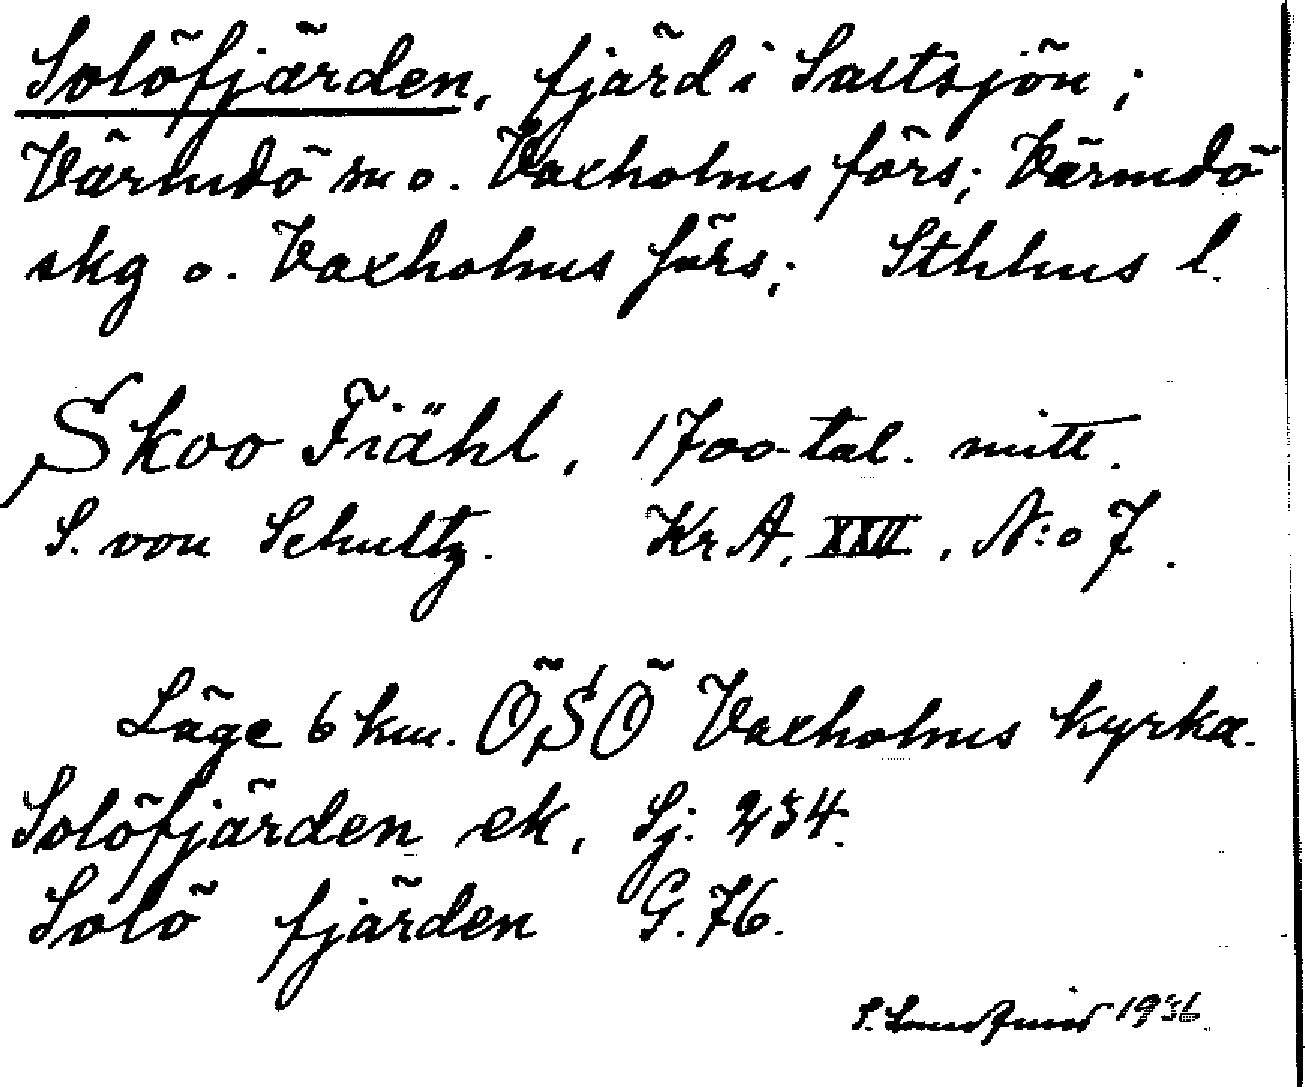 Solöfjärden, fjärd i Saltsjön;
Värmdö sn o. Vaxholms förs; Värmdö
skg o. Vaxholms förs; Sthlms l.
Skoo Fiähl, 1700-tal. mitt.
S. von Schultz. KrA, XXV, N:o 7.
Läge 6 km. ÖSÖ Vaxholms kyrka.
Solöfjärden ek, Sj. 234.
Solö fjärden G. 76.
S. 1936.